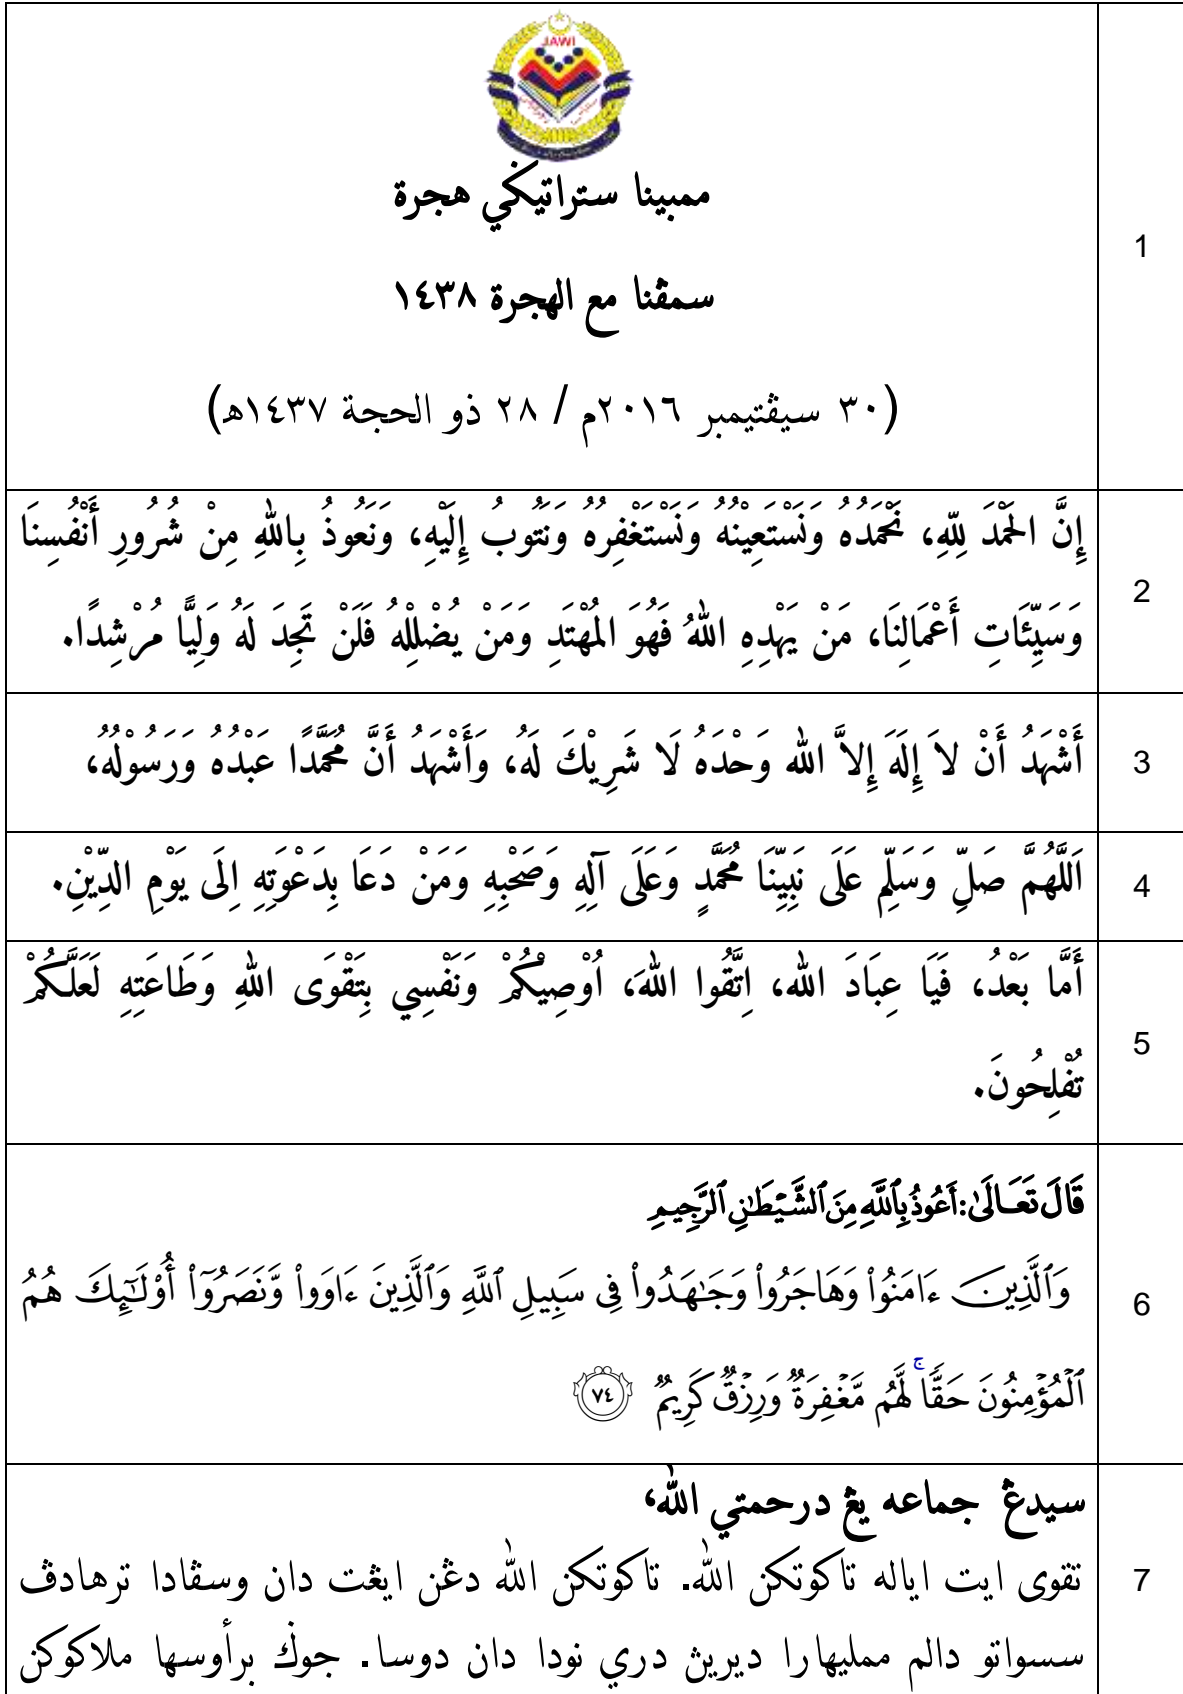 JAWI
ممبينا ستراتيݢي هجرة
سمڤنا مع الهجرة ١٤٣٨
(٣٠ سيڤتيمبر ٢٠١٦م / ٢٨ ذو الحجة ١٤٣٧ه)
1
إِنَّ الْحَمْدَ لِلّهِ، نَحْمَدُهُ وَنَسْتَعِيْنُهُ وَنَسْتَغْفِرُهُ وَنَتُوبُ إِلَيْهِ، وَنَعُوذُ بِاللهِ مِنْ شُرُورِ أَنْفُسِنَا
وَسَيِّئَاتِ أَعْمَالِنَا، مَنْ يَهْدِهِ اللهُ فَهُوَ الْمُهْتَدِ وَمَنْ يُضْلِلْهُ فَلَنْ تَجِدَ لَهُ وَلِيًّا مُرْشِدًا.
2
أَشْهَدُ أَنْ لاَ إِلَهَ إِلاَّ الله وَحْدَهُ لَا شَرِيْكَ لَهُ، وَأَشْهَدُ أَنَّ مُحَمَّدًا عَبْدُهُ وَرَسُوْلُهُ،
3
اَللَّهُمَّ صَلِّ وَسَلِّمْ عَلَى نَبِيِّنَا مُحَمَّدٍ وَعَلَى آلِهِ وَصَحْبِهِ وَمَنْ دَعَا بِدَعْوَتِهِ اِلَى يَوْمِ الدِّيْنِ.
4
أَمَّا بَعْدُ، فَيَا عِبَادَ الله، اِتَّقُوا اللهَ، اُوْصِيْكُمْ وَنَفْسِي بِتَقْوَى اللهِ وَطَاعَتِهِ لَعَلَّكُمْ
تُفْلِحُونَ.
5
قَالَ تَعَالَىٰ: أَعُوذُ بِٱللَّهِ مِنَ ٱلشَّيْطَٰنِ ٱلرَّجِيمِ
وَٱلَّذِينَ ءَامَنُواْ وَهَاجَرُواْ وَجَٰهَدُواْ فِى سَبِيلِ ٱللَّهِ وَٱلَّذِينَ ءَاوَواْ وَّنَصَرُوٓاْ أُوْلَٰٓئِكَ هُمُ
ٱلْمُؤْمِنُونَ حَقًّا ۚ لَّهُم مَّغْفِرَةٌ وَرِزْقٌ كَرِيمٌ ٧٤
6
سيدڠ جماعه يڠ درحمتي الله،
تقوى ايت اياله تاكوتكن الله. تاكوتكن الله دڠن ايڠت دان وسڤادا ترهادڤ
سسواتو دالم ممليهارا ديرين دري نودا دان دوسا. جوݢ برأوسها ملاكوكن
7